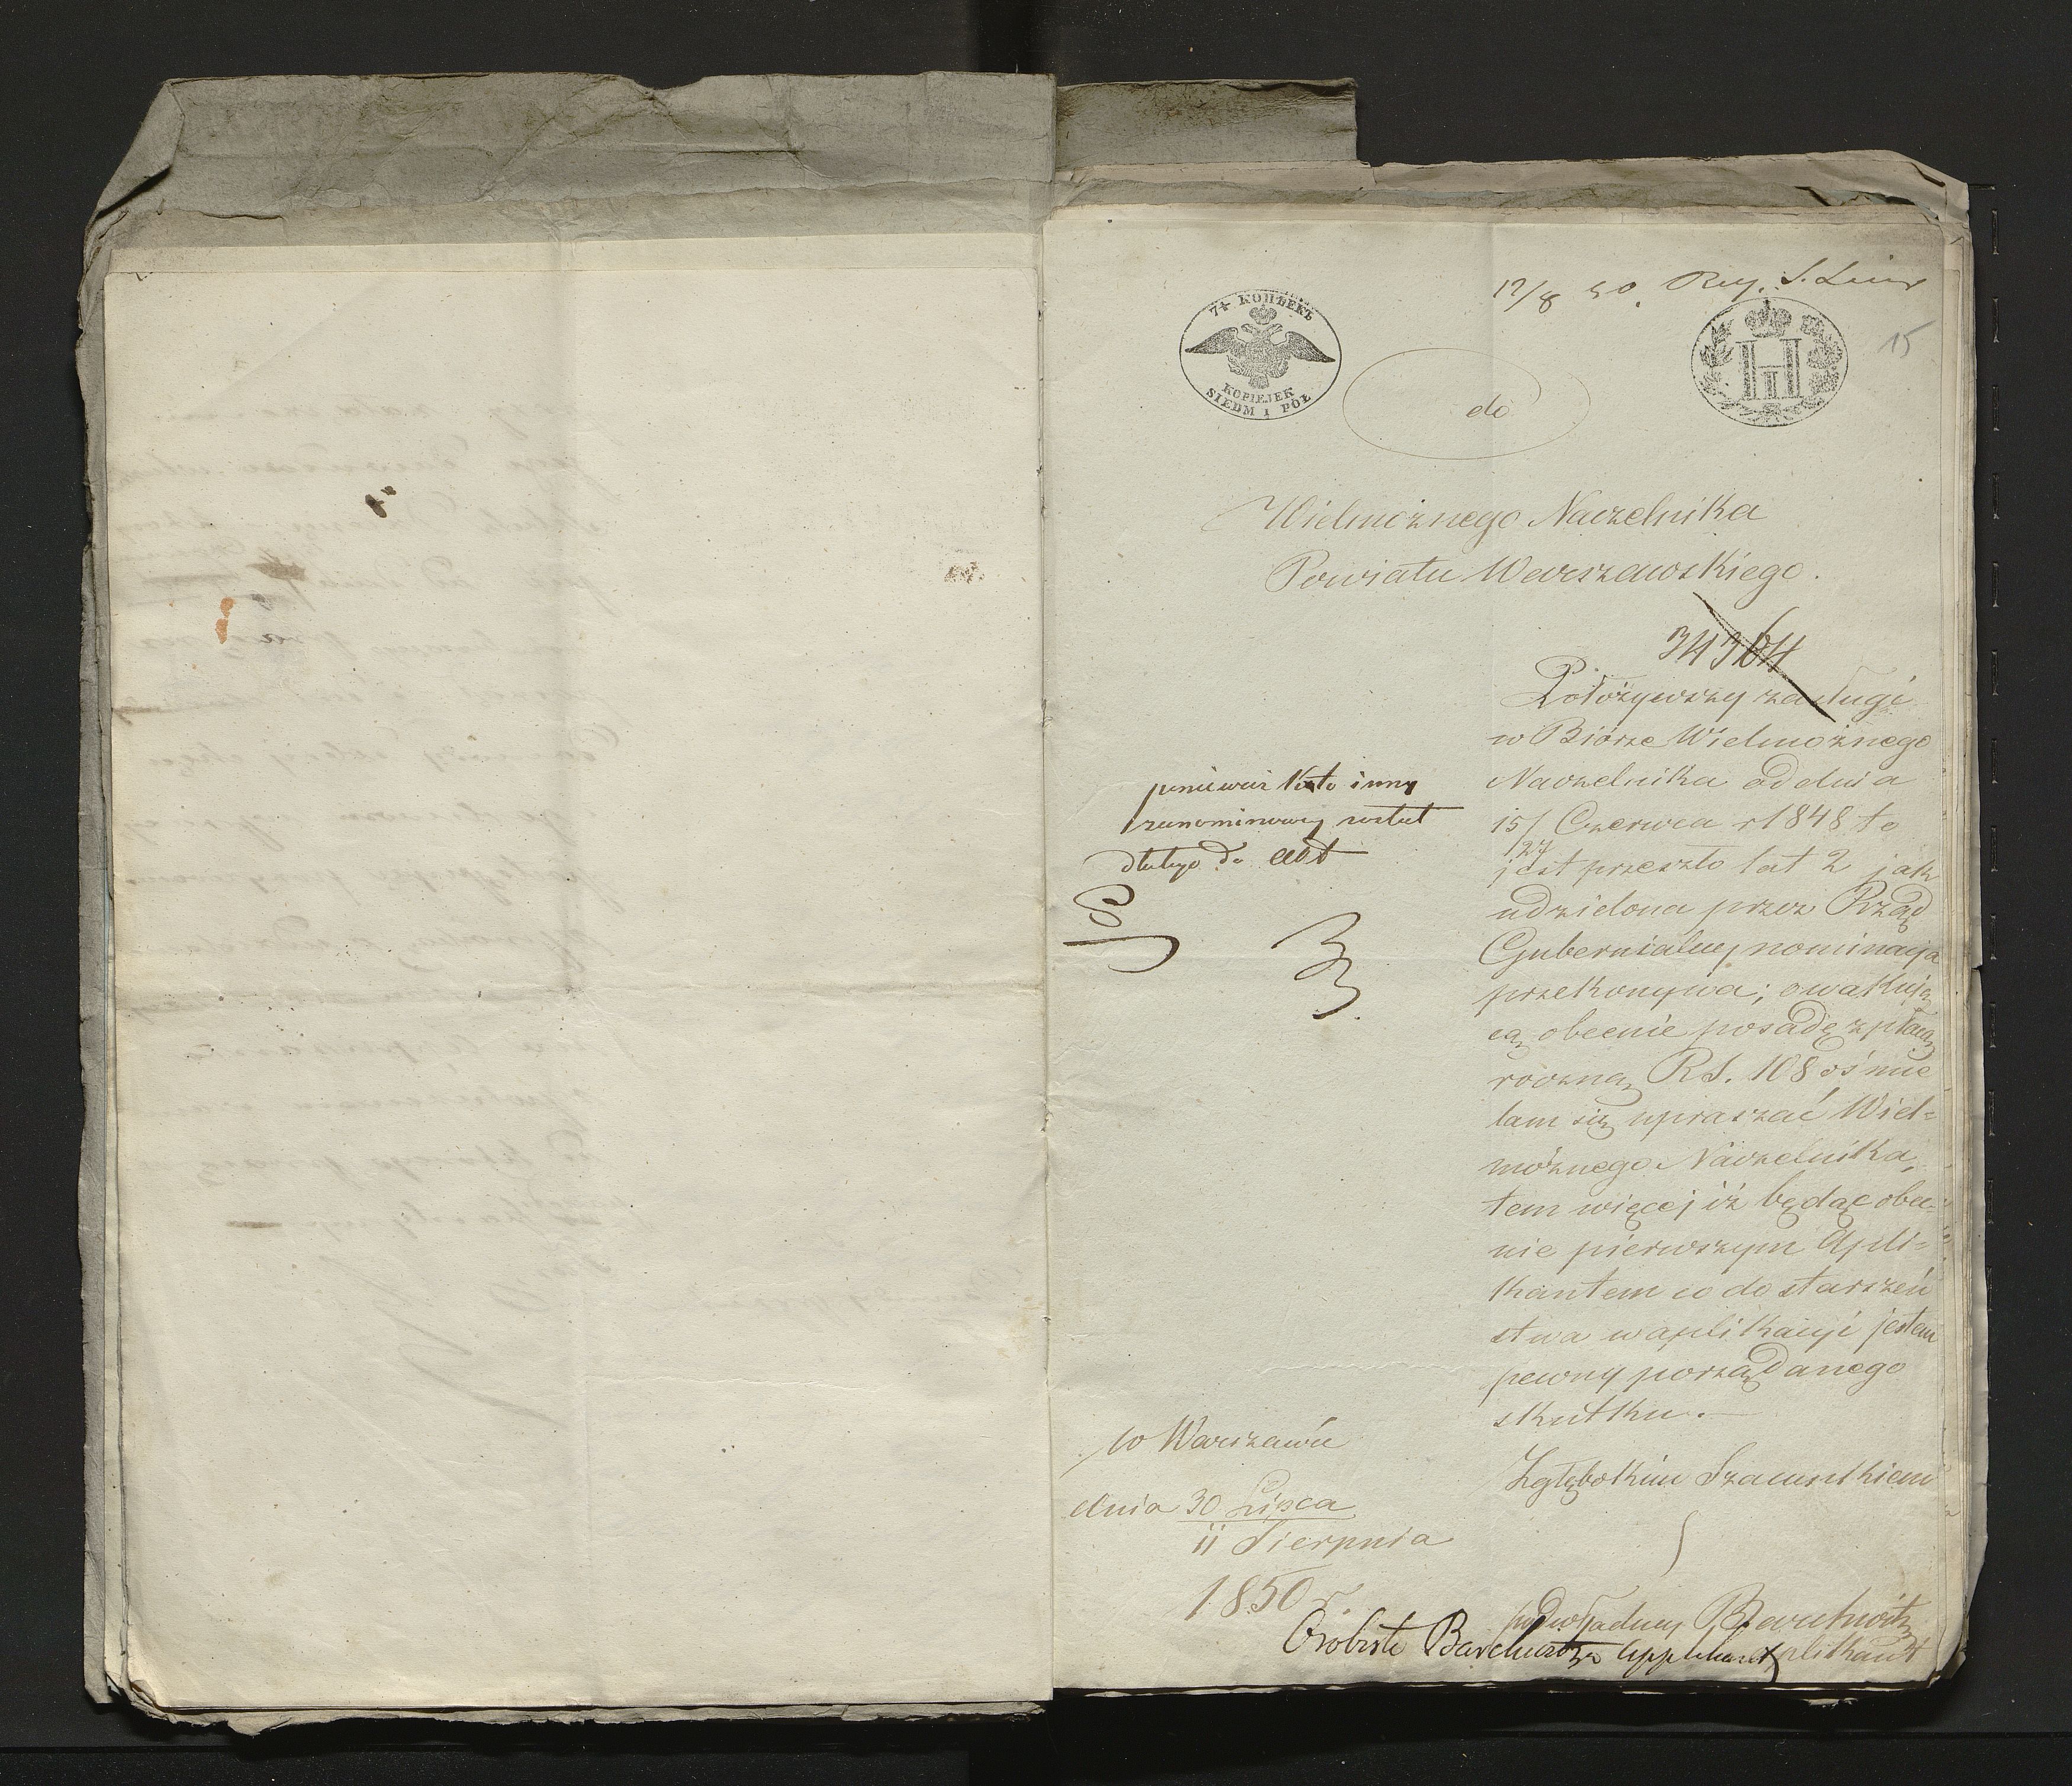 12/8 50. Rey. S.
15
7½ КОПѢЕКЪ
KOPIEJEK
SIEDM I PÓŁ
H
I
do
Wielmożnego Naczelnika
Powiatu Warszawskiego.
34364
Położywszy zasługi
w Biórze Wielmożnego
Naczelnika od dnia
15/27 Czerwca r 1848 to
jest przeszło lat 2 jak
udzielona przez Rząd
Gubernialny nominacya
przekonywa; o wakują
cą obecnie posadę z płacą
roczną RS. 108 ośmie
lam się upraszać Wiel=
możnego Naczelnika,
tem więcej iż będąc obec=
nie pierwszym Apli=
kantem co do starszeń
stwa w aplikacyi jestem
pewny porządanego
skutku.
Zgłębokim Szacunkiem
podwładny Barchwitz
Aplikant
ponieważ Kto inny
zanominowany został
dlatego do akt
w Warszawie
dnia 30 Lipca
11 Sierpnia
1850 r.
Osobiste Barchwitza Applikanta